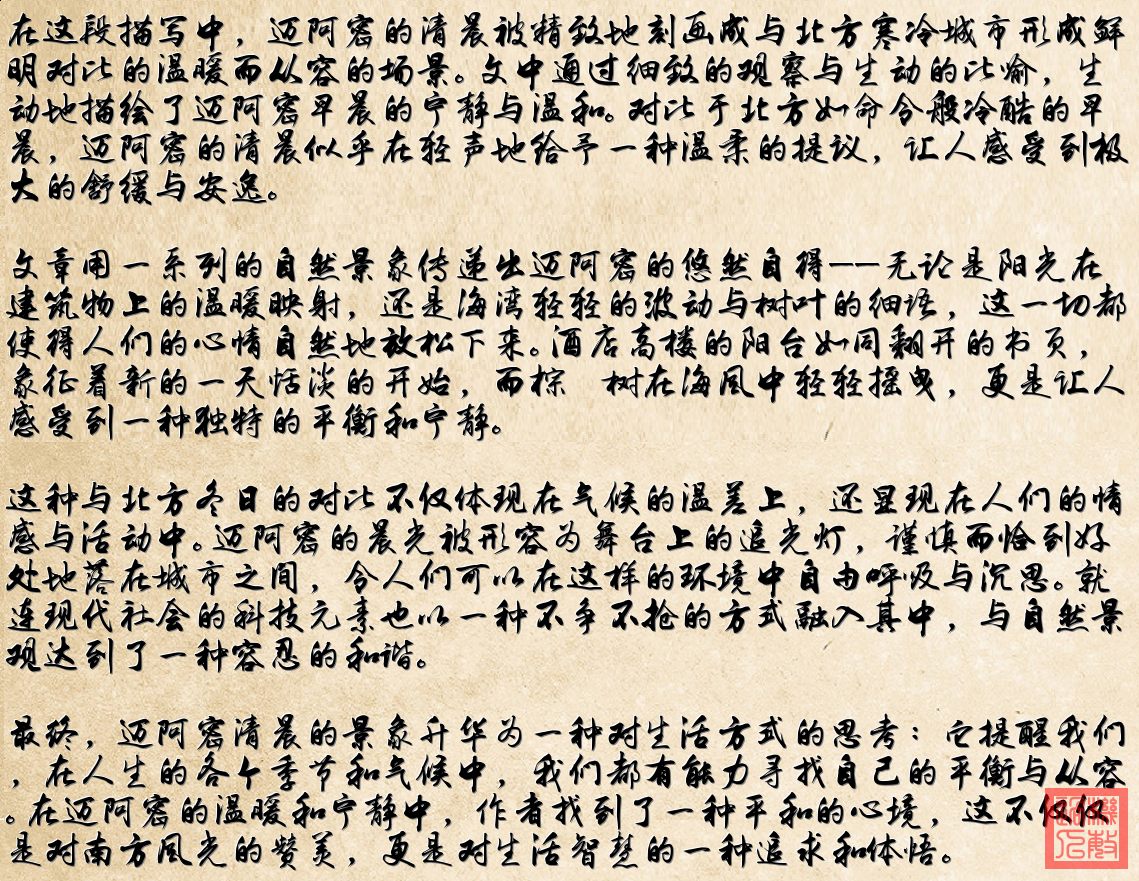 在这段描写中，迈阿密的清晨被精致地刻画成与北方寒冷城市形成鲜
明对比的温暖而从容的场景。文中通过细致的观察与生动的比喻，生
动地描绘了迈阿密早晨的宁静与温和。对比于北方如命令般冷酷的早
晨，迈阿密的清晨似乎在轻声地给予一种温柔的提议，让人感受到极
大的舒缓与安逸。
文章用一系列的自然景象传递出迈阿密的悠然自得——无论是阳光在
建筑物上的温暖映射，还是海湾轻轻的波动与树叶的细语，这一切都
使得人们的心情自然地放松下来。酒店高楼的阳台如同翻开的书页，
象征着新的一天恬淡的开始，而棕 树在海风中轻轻摇曳，更是让人
感受到一种独特的平衡和宁静。
这种与北方冬日的对比不仅体现在气候的温差上，还显现在人们的情
感与活动中。迈阿密的晨光被形容为舞台上的追光灯，谨慎而恰到好
处地落在城市之间，令人们可以在这样的环境中自由呼吸与沉思。就
连现代社会的科技元素也以一种不争不抢的方式融入其中，与自然景
观达到了一种容忍的和谐。
最终，迈阿密清晨的景象升华为一种对生活方式的思考：它提醒我们
，在人生的各个季节和气候中，我们都有能力寻找自己的平衡与从容
。在迈阿密的温暖和宁静中，作者找到了一种平和的心境，这不仅仅
是对南方风光的赞美，更是对生活智慧的一种追求和体悟。